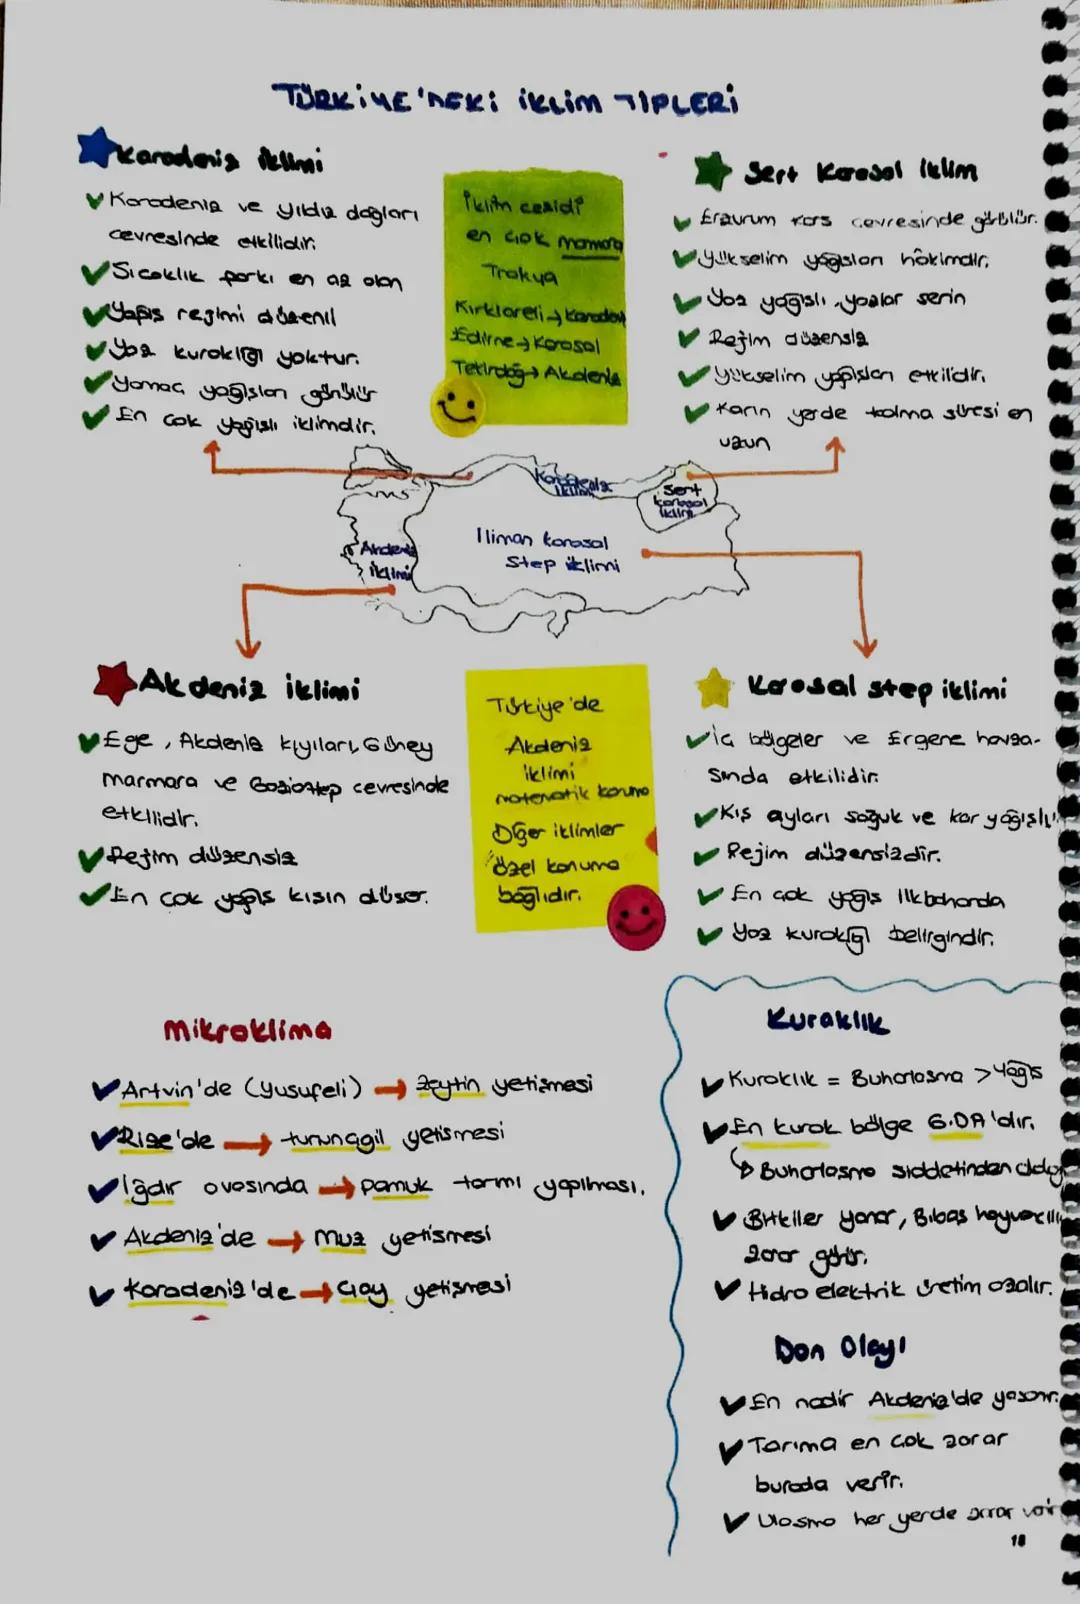 TÜRKİYE'DEKİ İKLİM TİPLERİ
Karadeniz iklimi
Karadeniz ve yıldız dağları
çevresinde etkilidir.
Sıcaklık farkı en az olan
Yağış rejimi düzenli
Yaz kuraklığı yoktur.
Yamaç yağışları görülür
En çok yağışlı iklimdir.
İklim çeşidi
en çok marmara
Trakya
Kırklareli → Karadeniz
Edirne → Karasal
Tekirdağ → Akdeniz
Sert Karasal İklim
Erzurum Kars çevresinde görülür.
Yükselim yağışları hakimdir.
Yaz yağışlı, yazlar serin
Rejim düzensiz
Yükselim yağışları etkilidir.
Karın yerde kalma süresi en
uzun
Karadeniz
iklimi
Sert
karasal
iklim
Akdeniz
iklimi
Iliman karasal
Step iklimi
Akdeniz iklimi
Ege, Akdeniz kıyıları, Güney
marmara ve Gaziantep çevresinde
etkilidir.
Rejim düzensiz
En çok yağış kışın düşer.
Türkiye'de
Akdeniz
iklimi
matematik konuma
Diğer iklimler
özel konuma
bağlıdır.
Karasal step iklimi
İç bölgeler ve Ergene havza-
sında etkilidir.
Kış ayları soğuk ve kar yağışlı
Rejim düzensizdir.
En çok yağış ilkbaharda
Yaz kuraklığı belirgindir.
Mikroklima
Artvin'de (Yusufeli) → Zeytin yetişmesi
Rize'de → turunçgil yetişmesi
Iğdır ovasında → pamuk tarımı yapılması.
Akdeniz'de → muz yetişmesi
Karadeniz'de → çay yetişmesi
Kuraklık
Kuraklık = Buharlaşma > Yağış
En kurak bölge G.DA'dır.
↳ Buharlaşma şiddetinden dolayı
Bitkiler yanar, B.baş hayvancılık
zarar görür.
Hidro elektrik üretim azalır.
Don Olayı
En nadir Akdeniz'de yaşanır.
Tarıma en çok zarar
burada verir.
Ulaşıma her yerde zarar verir
18